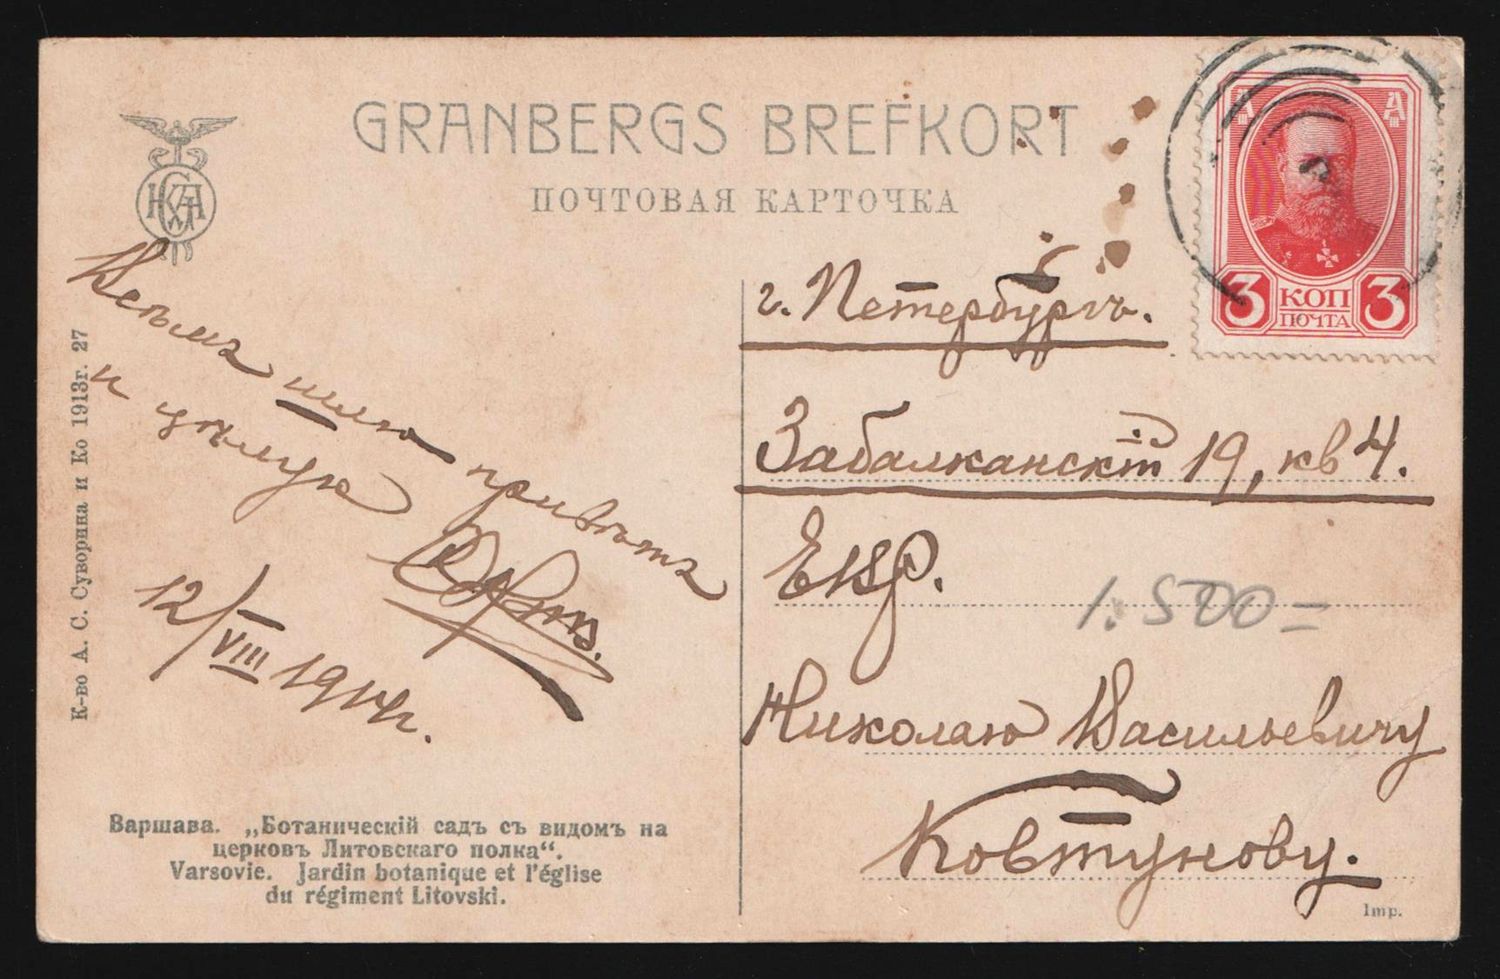 GRANBERGS BREFKORT
ПОЧТОВАЯ КАРТОЧКА
3 КОП 3
ПОЧТА
К-во А. С. Суворина и Ко 1913г. 27
Всѣмъ шлю привѣтъ
и цѣлую
12/VIII 1914г.
г. Петербургъ.
Забалканскій 19, кв 4.
Евр.
1.500=
Николаю Васильевичу
Ковтунову.
Варшава. „Ботаническій садъ съ видомъ на
церковь Литовскаго полка“.
Varsovie. Jardin botanique et l'église
du régiment Litovski.
Imp.